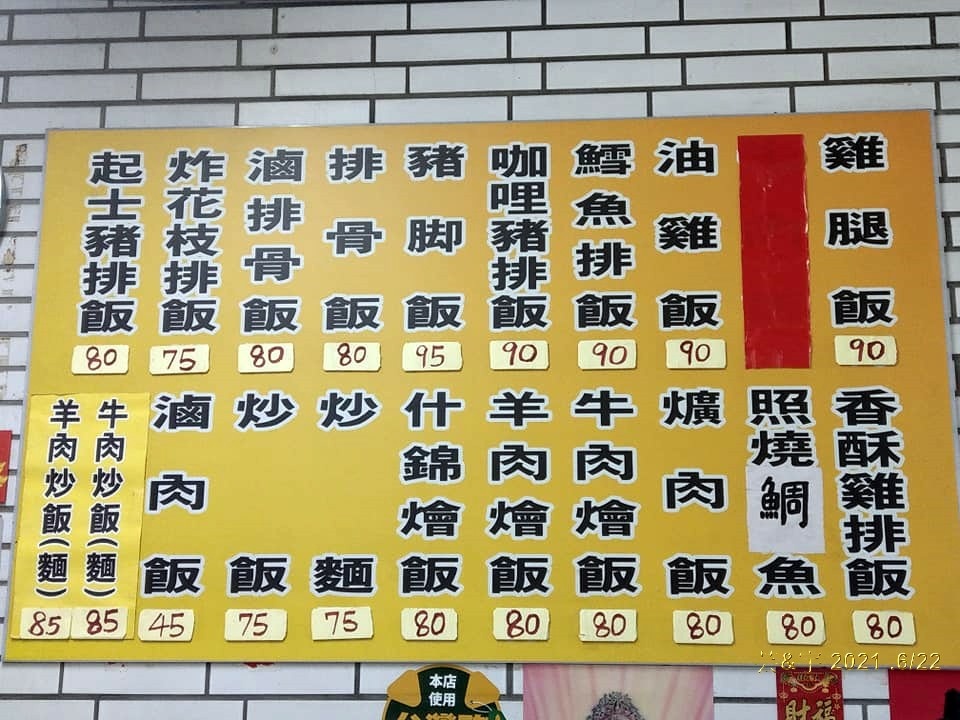 雞腿飯 90
油雞飯 90
鱈魚排飯 90
咖哩豬排飯 90
豬脚飯 95
排骨飯 80
滷排骨飯 80
炸花枝排飯 75
起士豬排飯 80
香酥雞排飯 80
照燒鯛魚 80
爌肉飯 80
牛肉燴飯 80
羊肉燴飯 80
什錦燴飯 80
炒麵 75
炒飯 75
滷肉飯 45
牛肉炒飯(麵) 85
羊肉炒飯(麵) 85
本店
使用
財福
2021.6/22